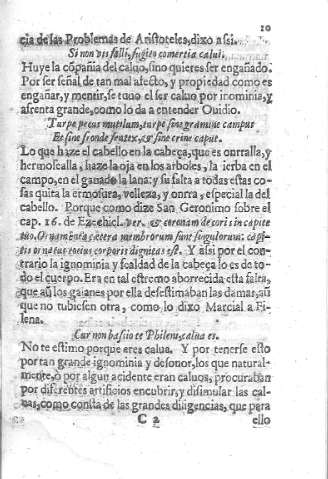 10
cia de las Problemas de Aristoteles, dixo assi.
Si non vis falli, fugito comertia calui.
Huye la cõpañia del caluo, sino quieres ser engañado.
Por ser señal de tan mal afecto, y propiedad como es
engañar, y mentir, se tuuo el ser caluo por inominia, y
afrenta grande, como lo da a entender Ouidio.
Turpe pecus mutilum, turpe sine gramine campus
Et sine fronde frutex, & sine crine caput.
Lo que haze el cabello en la cabeça, que es onrralla, y
hermosealla, haze la oja en los arboles, la ierba en el
campo, en el ganado la lana: y su falta a todas estas co-
sas quita la ermosura, velleza, y onrra, especial la del
cabello. Porque como dize San Geronimo sobre el
cap. 16. de Ezechiel. ver. & coronam decoris in capite
tuo. Ornamenta cætera membrorum sunt singulorum: capi-
tis ornatus totius corporis dignitas est. Y assi por el con-
trario la ignominia y fealdad de la cabeça lo es de to-
do el cuerpo. Era en tal estremo aborrecida esta falta,
que aũ los galanes por ella desestimaban las damas, asi
que no tubiesen otra, como lo dixo Marcial a Fi-
lena.
Cur non bassio te Philens, calua es.
No te estimo porque eres calua. Y por tenerse esto
por tan grande ignominia y desonor, los que natural-
mente, o por algun acidente eran caluos, procuraban
por diferentes artificios encubrir, y disimular las cal-
uas, como consta de las grandes diligencias, que para
C 2 ello